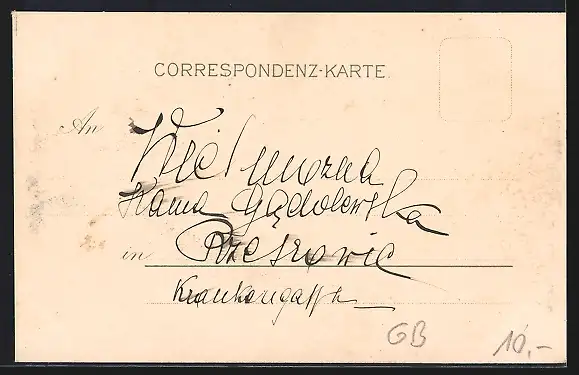 CORRESPONDENZ-KARTE
An
Wielmożna
Hanna Gądolewska
in Rzeszowie
Krankengasse
GB 10,-